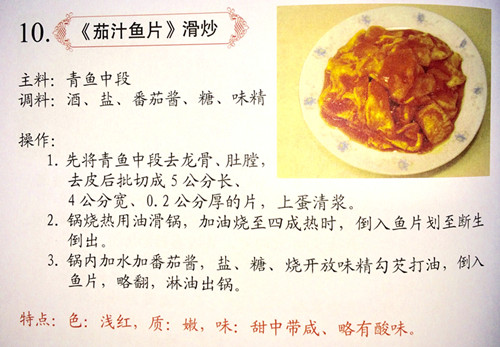 10. 《茄汁鱼片》滑炒
主料：青鱼中段
调料：酒、盐、番茄酱、糖、味精
操作：
1. 先将青鱼中段去龙骨、肚膛，
去皮后批切成5公分长、
4公分宽、0.2公分厚的片，上蛋清浆。
2. 锅烧热用油滑锅，加油烧至四成热时，倒入鱼片划至断生
倒出。
3. 锅内加水加番茄酱，盐、糖、烧开放味精勾芡打油，倒入
鱼片，略翻，淋油出锅。
特点：色：浅红，质：嫩，味：甜中带咸、略有酸味。